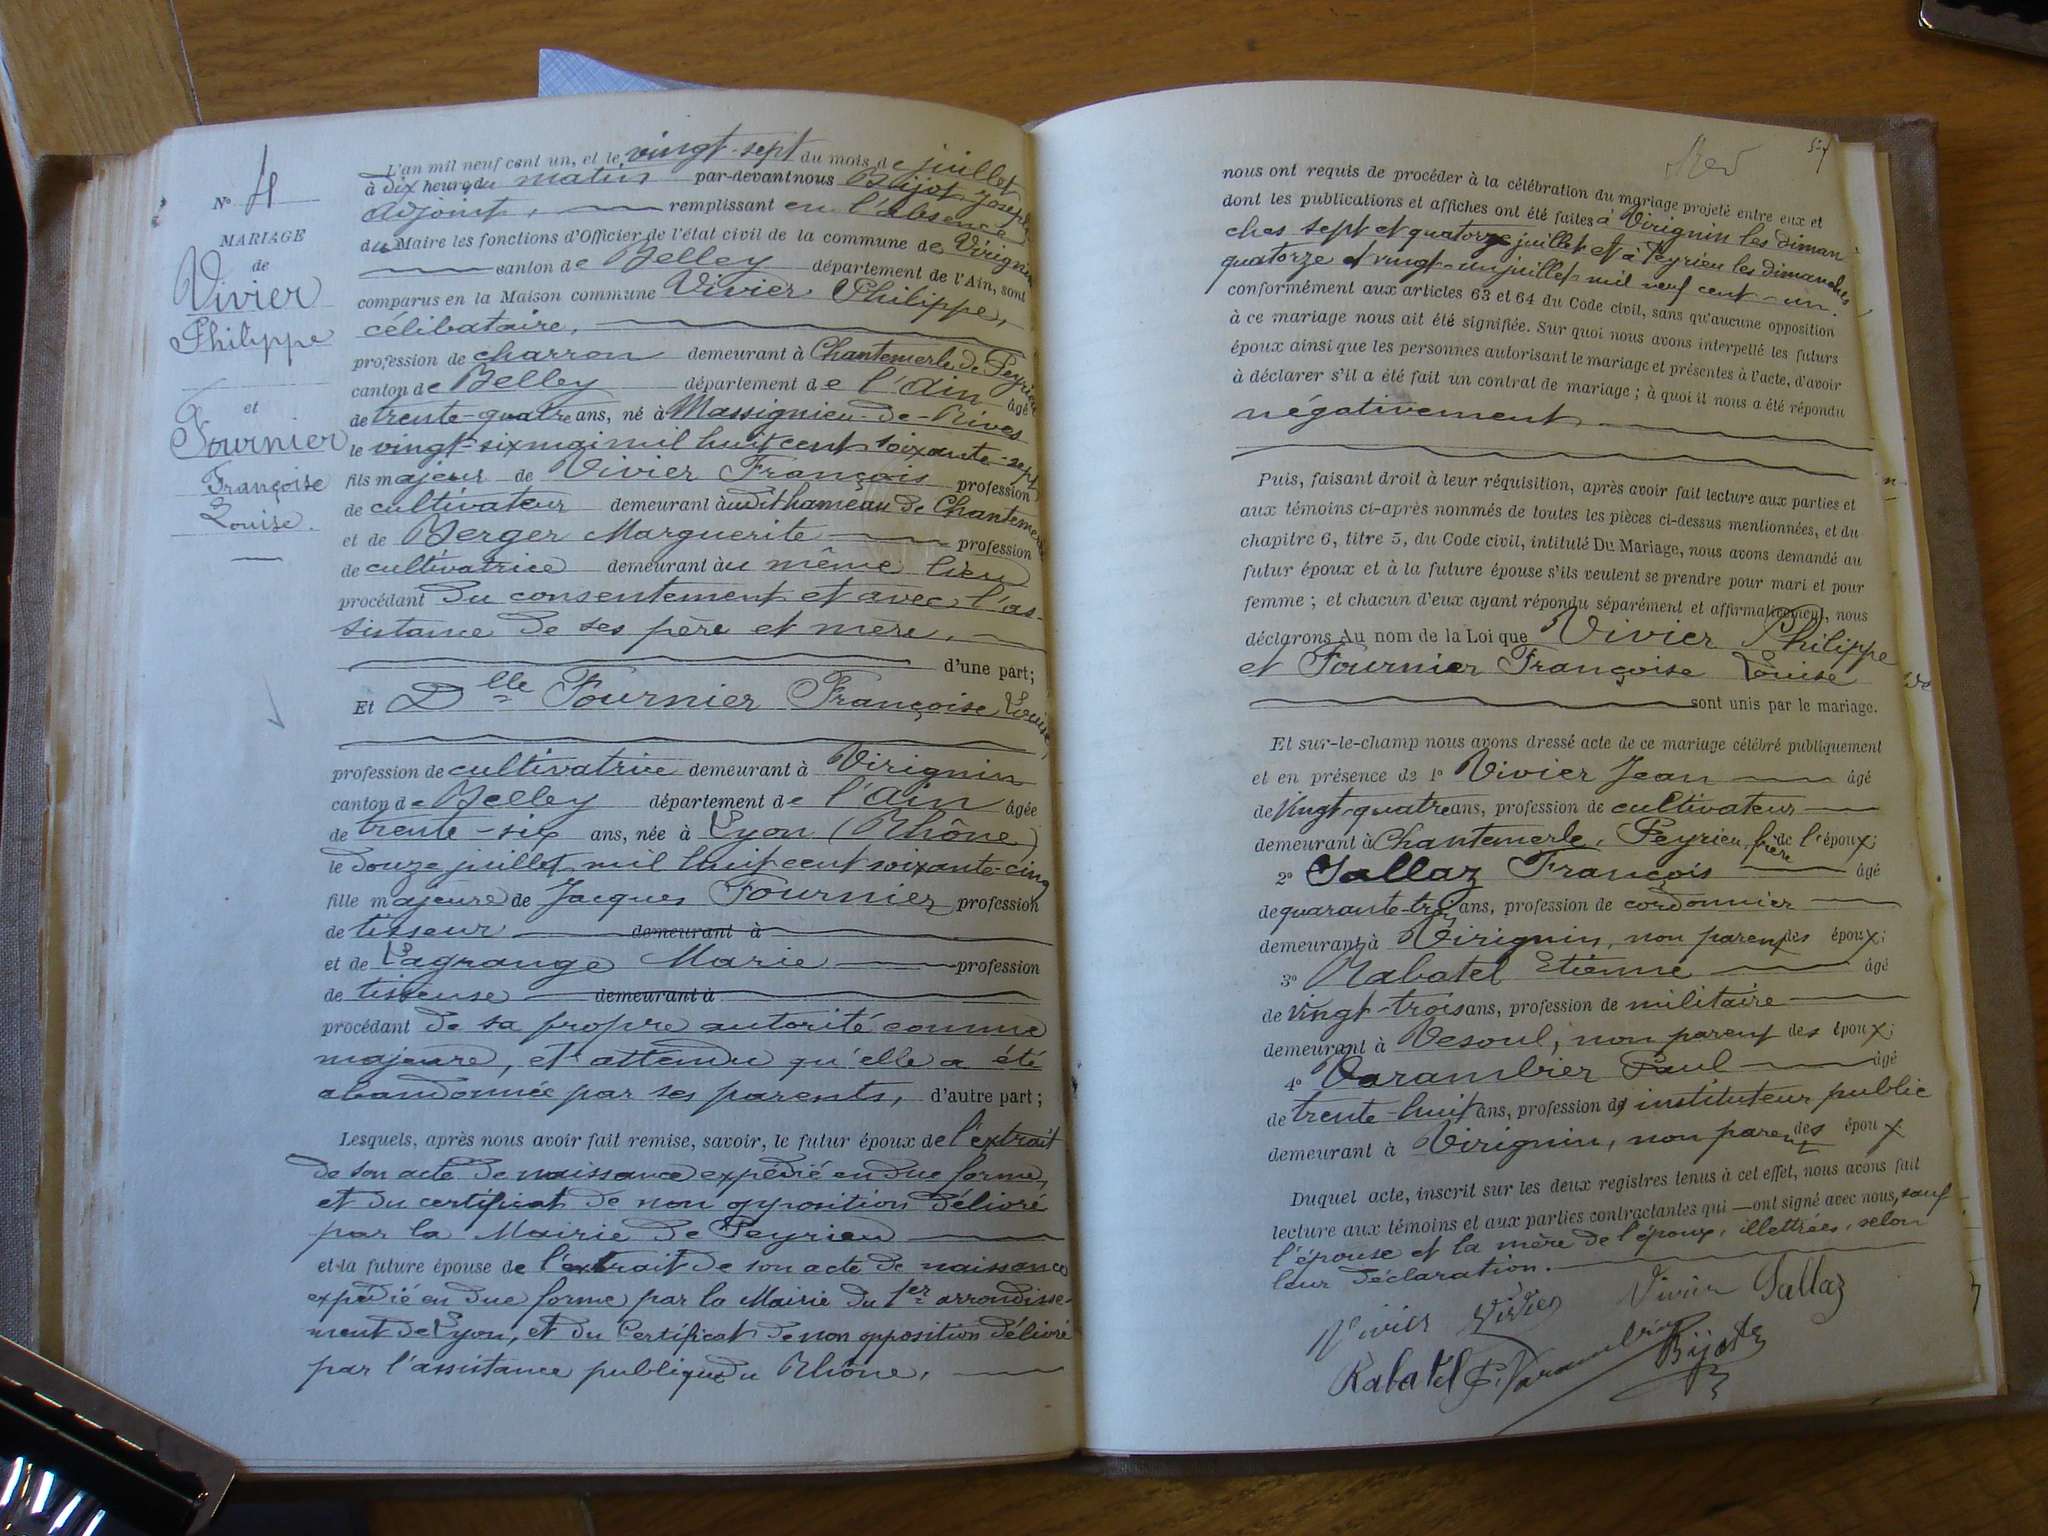 N° 4
MARIAGE
de
Vivier
Philippe
et
Fournier
Françoise
Louise.
L'an mil neuf cent un, et le vingt-sept du mois de juillet
à dix heures du matin par-devant nous Bijot Joseph
Adjoint, remplissant en l'absence
du Maire les fonctions d'Officier de l'état civil de la commune de Virignin
canton de Belley département de l'Ain, sont
comparus en la Maison commune Vivier Philippe,
célibataire,
profession de charron demeurant à Chantemerle de Peyrieu
canton de Belley département de l'Ain âgé
de trente-quatre ans, né à Massignieu-de-Rives
le vingt-six mai mil huit cent soixante-sept
fils majeur de Vivier François profession
de cultivateur demeurant audit hameau de Chantemerle
et de Berger Marguerite profession
de cultivatrice demeurant au même lieu
procédant du consentement et avec l'as-
sistance de ses père et mère,
d'une part;
Et Dlle Fournier Françoise Louise,
profession de cultivatrice demeurant à Virignin
canton de Belley département de l'Ain âgée
de trente-six ans, née à Lyon (Rhône)
le douze juillet mil huit cent soixante-cinq
fille majeure de Jacques Fournier profession
de tisseur demeurant à
et de Lagrange Marie profession
de tisseuse demeurant à
procédant de sa propre autorité comme
majeure, et attendu qu'elle a été
abandonnée par ses parents, d'autre part;
Lesquels, après nous avoir fait remise, savoir, le futur époux de l'extrait
de son acte de naissance expédié en due forme,
et du certificat de non opposition délivré
par la Mairie de Peyrieu
et la future épouse de l'extrait de son acte de naissance
expédié en due forme par la Mairie du 1er arrondisse-
ment de Lyon, et du Certificat de non opposition délivré
par l'assistance publique du Rhône,
nous ont requis de procéder à la célébration du mariage projeté entre eux et
dont les publications et affiches ont été faites à Virignin les diman
ches sept et quatorze juillet et à Peyrieu les dimanches
quatorze et vingt-un juillet mil neuf cent-un.
conformément aux articles 63 et 64 du Code civil, sans qu'aucune opposition
à ce mariage nous ait été signifiée. Sur quoi nous avons interpellé les futurs
époux ainsi que les personnes autorisant le mariage et présentes à l'acte, d'avoir
à déclarer s'il a été fait un contrat de mariage; à quoi il nous a été répondu
négativement
Puis, faisant droit à leur réquisition, après avoir fait lecture aux parties et
aux témoins ci-après nommés de toutes les pièces ci-dessus mentionnées, et du
chapitre 6, titre 5, du Code civil, intitulé Du Mariage, nous avons demandé au
futur époux et à la future épouse s'ils veulent se prendre pour mari et pour
femme; et chacun d'eux ayant répondu séparément et affirmativement, nous
déclarons Au nom de la Loi que Vivier Philippe
et Fournier Françoise Louise
sont unis par le mariage.
Et sur-le-champ nous avons dressé acte de ce mariage célébré publiquement
et en présence de 1° Vivier Jean âgé
de vingt-quatre ans, profession de cultivateur
demeurant à Chantemerle, Peyrieu, frère de l'époux;
2° Sallaz François âgé
de quarante-trois ans, profession de cordonnier
demeurant à Virignin, non parent des époux;
3° Rabatel Etienne âgé
de vingt-trois ans, profession de militaire
demeurant à Vesoul, non parent des époux;
4° Varambier Paul âgé
de trente-huit ans, profession d' instituteur public
demeurant à Virignin, non parent des époux
Duquel acte, inscrit sur les deux registres tenus à cet effet, nous avons fait
lecture aux témoins et aux parties contractantes qui ont signé avec nous, sauf
l'épouse et la mère de l'époux, illettrées, selon
leur déclaration.
Vivier Vivier Vivier Sallaz
Rabatel P. Varambier Bijot